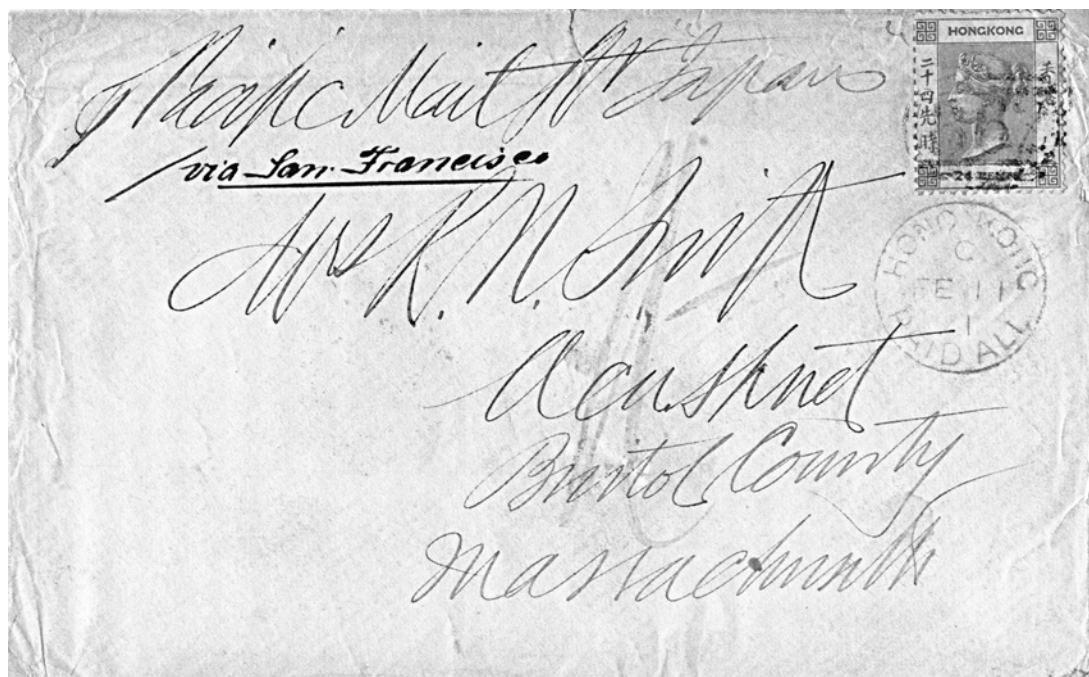 Pacific Mail Str Japan
via San Francisco
Mrs R. N. Swift
Acushnet
Bristol County
Massachusetts
HONGKONG
二十四先時
24
HONG KONG
C
FE 11
1
PAID ALL